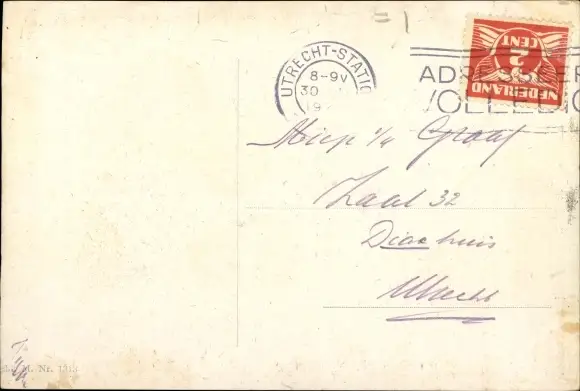 UTRECHT-STATIO
8-9V
30
19
ADRESSEER
VOLLEDIG
NEDERLAND
2
CENT
Miep v/d Graaf
Zaal 32
Diac huis
Utrecht
M. Nr. 1313